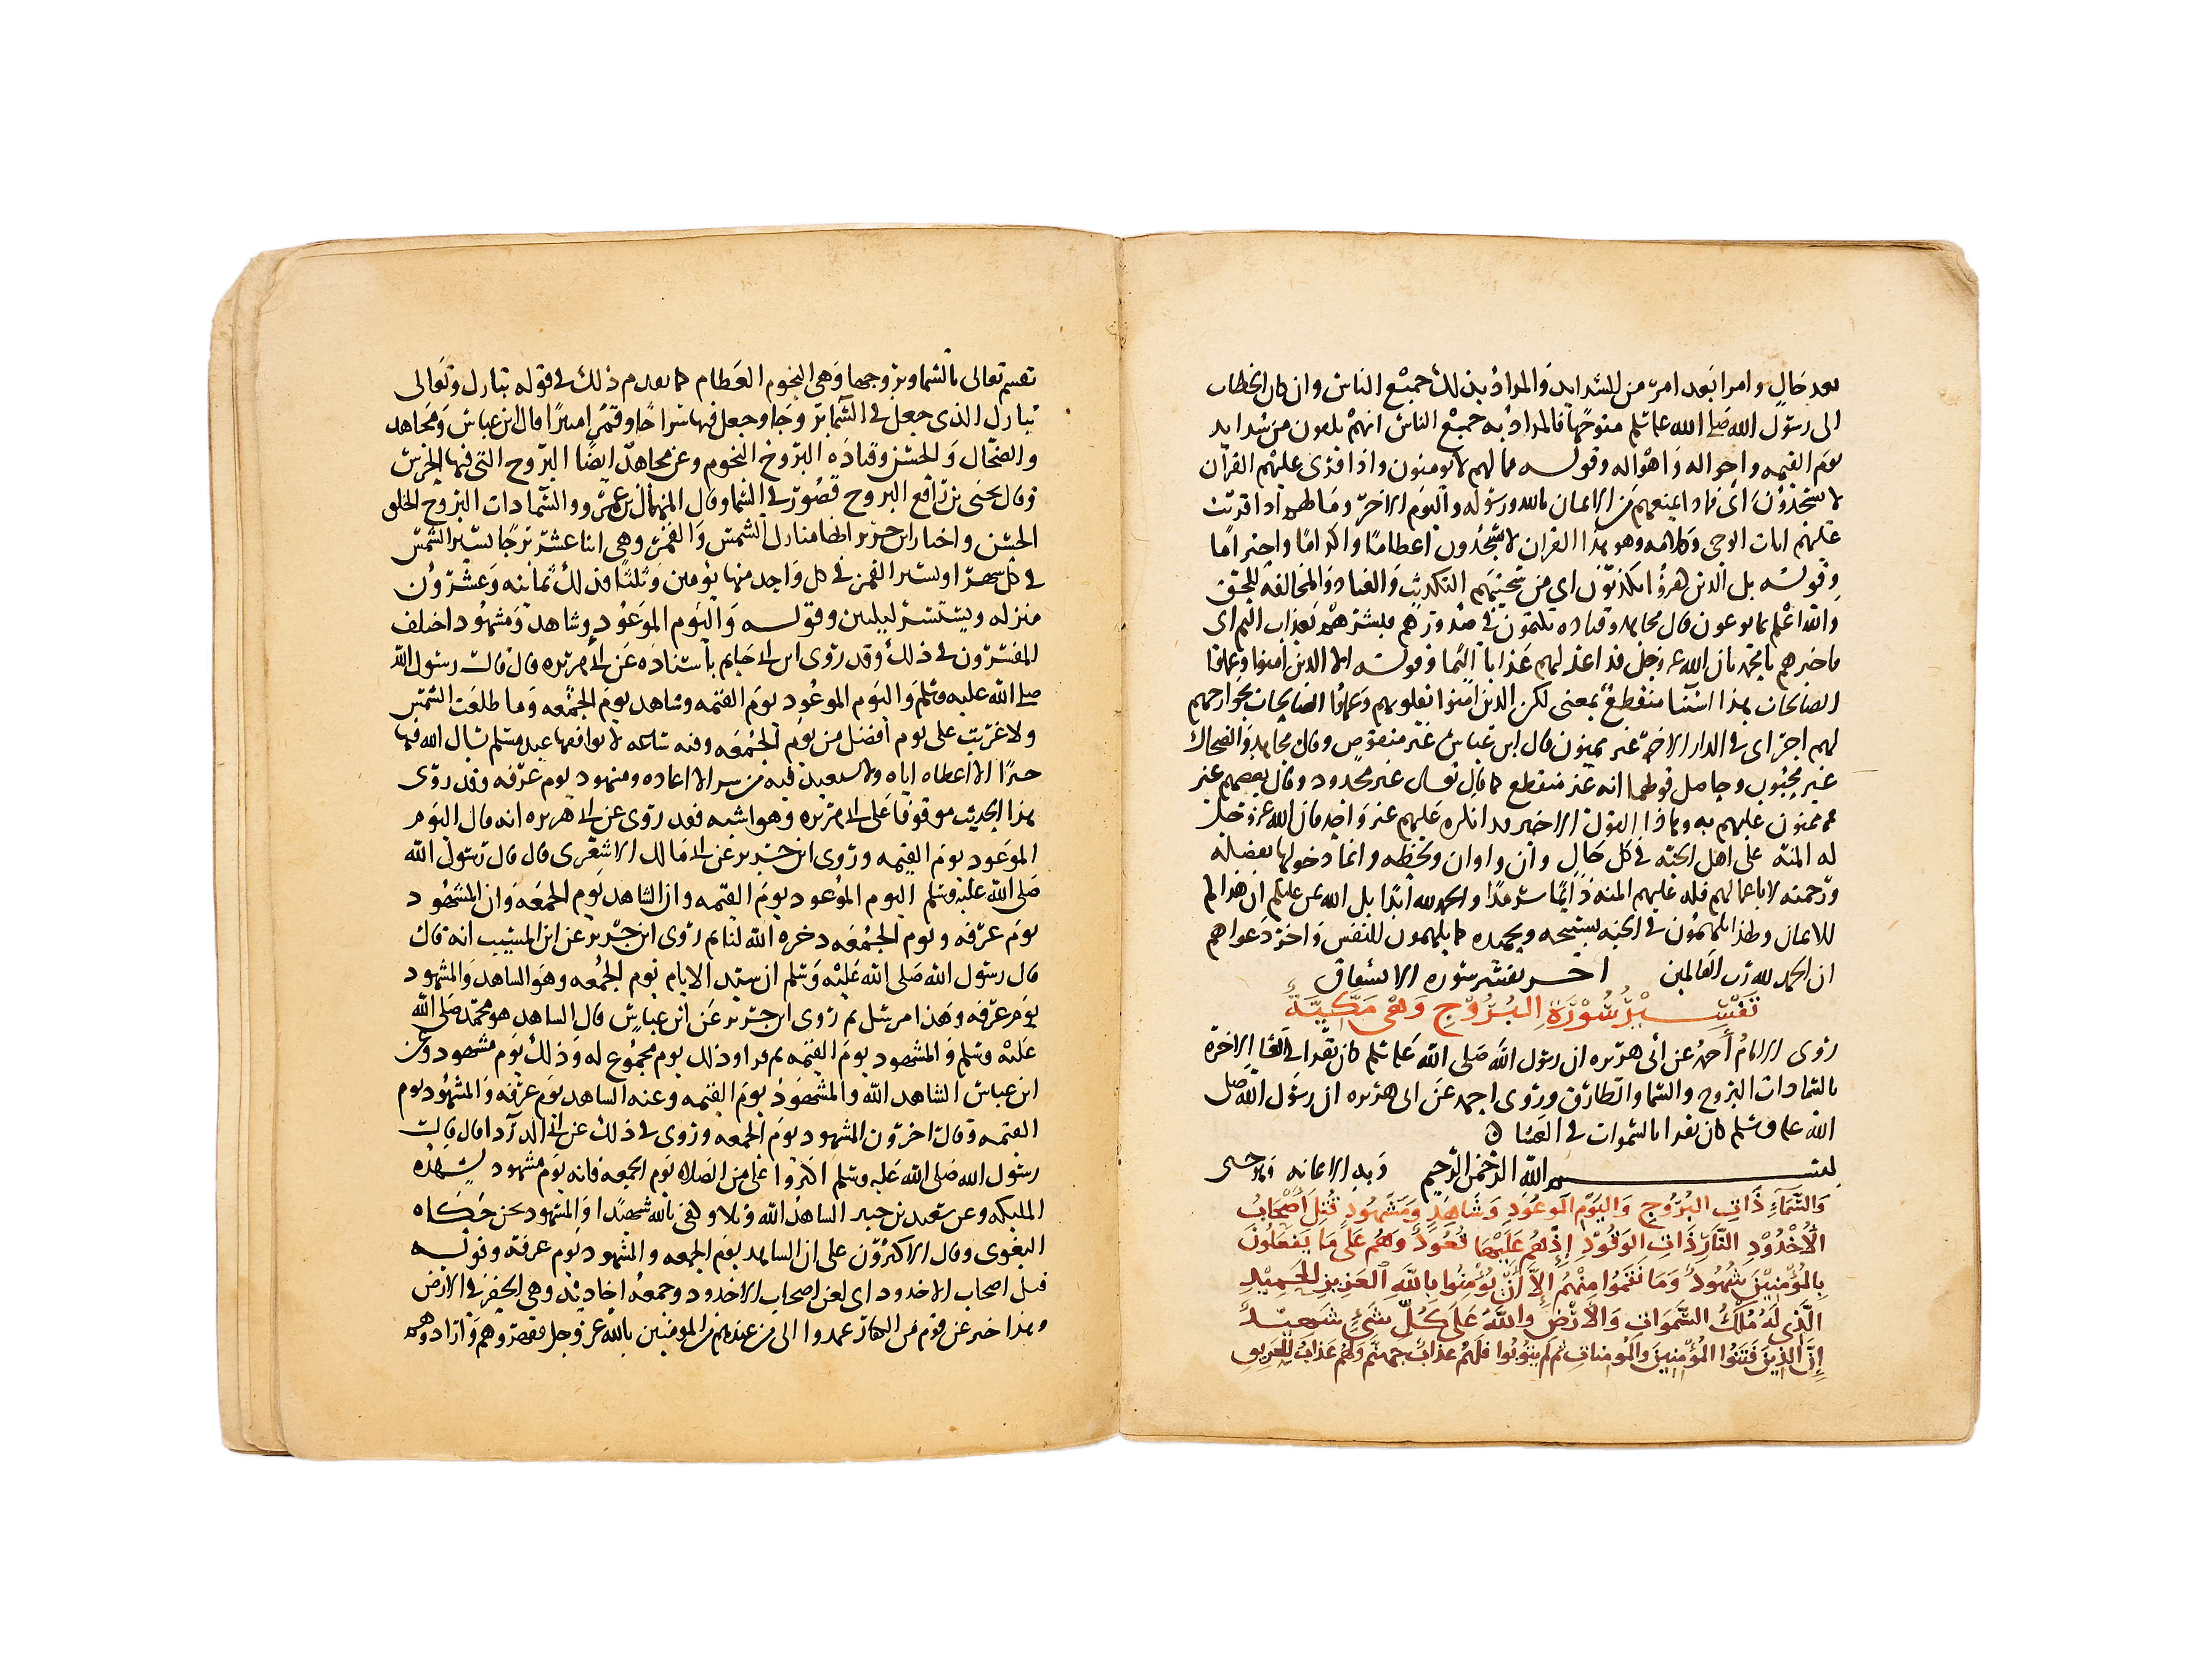 بعد حال وامرا بعد امر من الشدايد والمراد بذلك جميع الناس وان كان الخطاب
الى رسول الله صلى الله عليه وسلم متوجها فالمراد به جميع الناس انهم يلقون من شدايد
يوم القيمه واحواله واهواله وقوله فما لهم لا يومنون واذا قرى عليهم القران
لا يسجدون اى فماذا يمنعهم من الايمان بالله ورسوله واليوم الاخر وما لهم اذا قريت
عليهم ايات الوحى وكلامه وهو هذا القران لا يسجدون اعظاما واكراما واحتراما
وقوله بل الذين كفروا يكذبون اى من سجيتهم التكذيب والعناد والمخالفه للحق
والله اعلم بما يوعون قال مجاهد وقتاده يكتمون فى صدورهم فبشرهم بعذاب اليم اى
فاخبرهم يا محمد بان الله عز وجل قد اعد لهم عذابا اليما وقوله الا الذين امنوا وعملوا
الصالحات هذا استثنا منقطع بمعنى لكن الذين امنوا بقلوبهم وعملوا الصالحات بجوارحهم
لهم اجر اى فى الدار الاخره غير ممنون قال ابن عباس غير منقوص وقال مجاهد والضحاك
غير محسوب وحاصل قولهما انه غير منقطع كما قال تعالى غير مجذوذ وقال بعضهم غير
ممنون عليهم به وهذا القول الاخير قد انكره عليهم غير واحد فان الله عز وجل
له المنه على اهل الجنه فى كل حال وان واوان ولحظه وانما دخولها بفضله
ورحمته لا باعمالهم فله عليهم المنه دايما سرمدا والحمد لله ابدا بل الله يمن عليكم ان هداكم
للايمان ولهذا يلهمون فى الجنه تسبيحه وتحميده كما يلهمون النفس واخر دعواهم
ان الحمد لله رب العالمين اخر تفسير سوره الانشقاق
تفسير سورة البروج وهى مكية
روى الامام احمد عن ابى هريره ان رسول الله صلى الله عليه وسلم كان يقرا فى العشا الاخره
بالسما ذات البروج والسما والطارق وروى احمد عن ابى هريره ان رسول الله صلى
الله عليه وسلم كان يقرا بالسموات فى العشا
بسم الله الرحمن الرحيم وبه الاعانه
والسماء ذات البروج واليوم الموعود وشاهد ومشهود قتل اصحاب
الاخدود النار ذات الوقود اذ هم عليها قعود وهم على ما يفعلون
بالمؤمنين شهود وما نقموا منهم الا ان يؤمنوا بالله العزيز الحميد
الذى له ملك السموات والارض والله على كل شىء شهيد
ان الذين فتنوا المؤمنين والمومنات ثم لم يتوبوا فلهم عذاب جهنم ولهم عذاب الحريق
يقسم تعالى بالسما وبروجها وهى النجوم العظام كما تقدم ذلك فى قوله تبارك وتعالى
تبارك الذى جعل فى السما بروجا وجعل فيها سراجا وقمرا منيرا قال ابن عباس ومجاهد
والضحاك والحسن وقتاده البروج النجوم وعن مجاهد ايضا البروج التى فيها الحرس
وقال يحيى بن رافع البروج قصور فى السما وقال المنهال بن عمرو والسما ذات البروج الخلق
الحسن واختار ابن جرير انها منازل الشمس والقمر وهى اثنا عشر برجا تسير الشمس
فى كل شهرا ويسير القمر فى كل واحد منها يومين وثلثا فذلك ثمانيه وعشرون
منزله ويستسر ليلتين وقوله واليوم الموعود وشاهد ومشهود اختلف
المفسرون فى ذلك وقد روى ابن ابى حاتم باسناده عن ابى هريره قال قال رسول الله
صلى الله عليه وسلم واليوم الموعود يوم القيمه وشاهد يوم الجمعه وما طلعت الشمس
ولا غربت على يوم افضل من يوم الجمعه وفيه ساعه لا يوافقها عبد مسلم يسال الله فيها
خيرا الا اعطاه اياه ولا يستعيذ فيه من شر الا اعاذه ومشهود يوم عرفه وقد روى
هذا الحديث موقوفا على ابى هريره وهو اشبه فقد روى عن ابى هريره انه قال اليوم
الموعود يوم القيمه وروى ابن جرير عن ابى مالك الاشعرى قال قال رسول الله
صلى الله عليه وسلم اليوم الموعود يوم القيمه وان الشاهد يوم الجمعه وان المشهود
يوم عرفه ويوم الجمعه ذخره الله لنا ثم روى ابن جرير عن ابن المسيب انه قال
قال رسول الله صلى الله عليه وسلم ان سيد الايام يوم الجمعه وهو الشاهد والمشهود
يوم عرفه وهذا مرسل ثم روى ابن جرير عن ابن عباس قال الشاهد هو محمد صلى الله
عليه وسلم والمشهود يوم القيمه ثم قرا وذلك يوم مجموع له وذلك يوم مشهود وعن
ابن عباس الشاهد الله والمشهود يوم القيمه وعنه الشاهد يوم عرفه والمشهود يوم
القيمه وقال اخرون المشهود يوم الجمعه وروى فى ذلك عن ابى الدردا قال قال
رسول الله صلى الله عليه وسلم اكثروا على من الصلاه يوم الجمعه فانه يوم مشهود تشهده
المليكه وعن سعيد بن جبير الشاهد الله وتلا وكفى بالله شهيدا والمشهود نحن حكاه
البغوى وقال الاكثرون على ان الشاهد يوم الجمعه والمشهود يوم عرفه وقوله
قتل اصحاب الاخدود اى لعن اصحاب الاخدود وجمعه اخاديد وهى الحفر فى الارض
وهذا خبر عن قوم من الكفار عمدوا الى من عندهم من المومنين بالله عز وجل فقهروهم وارادوهم